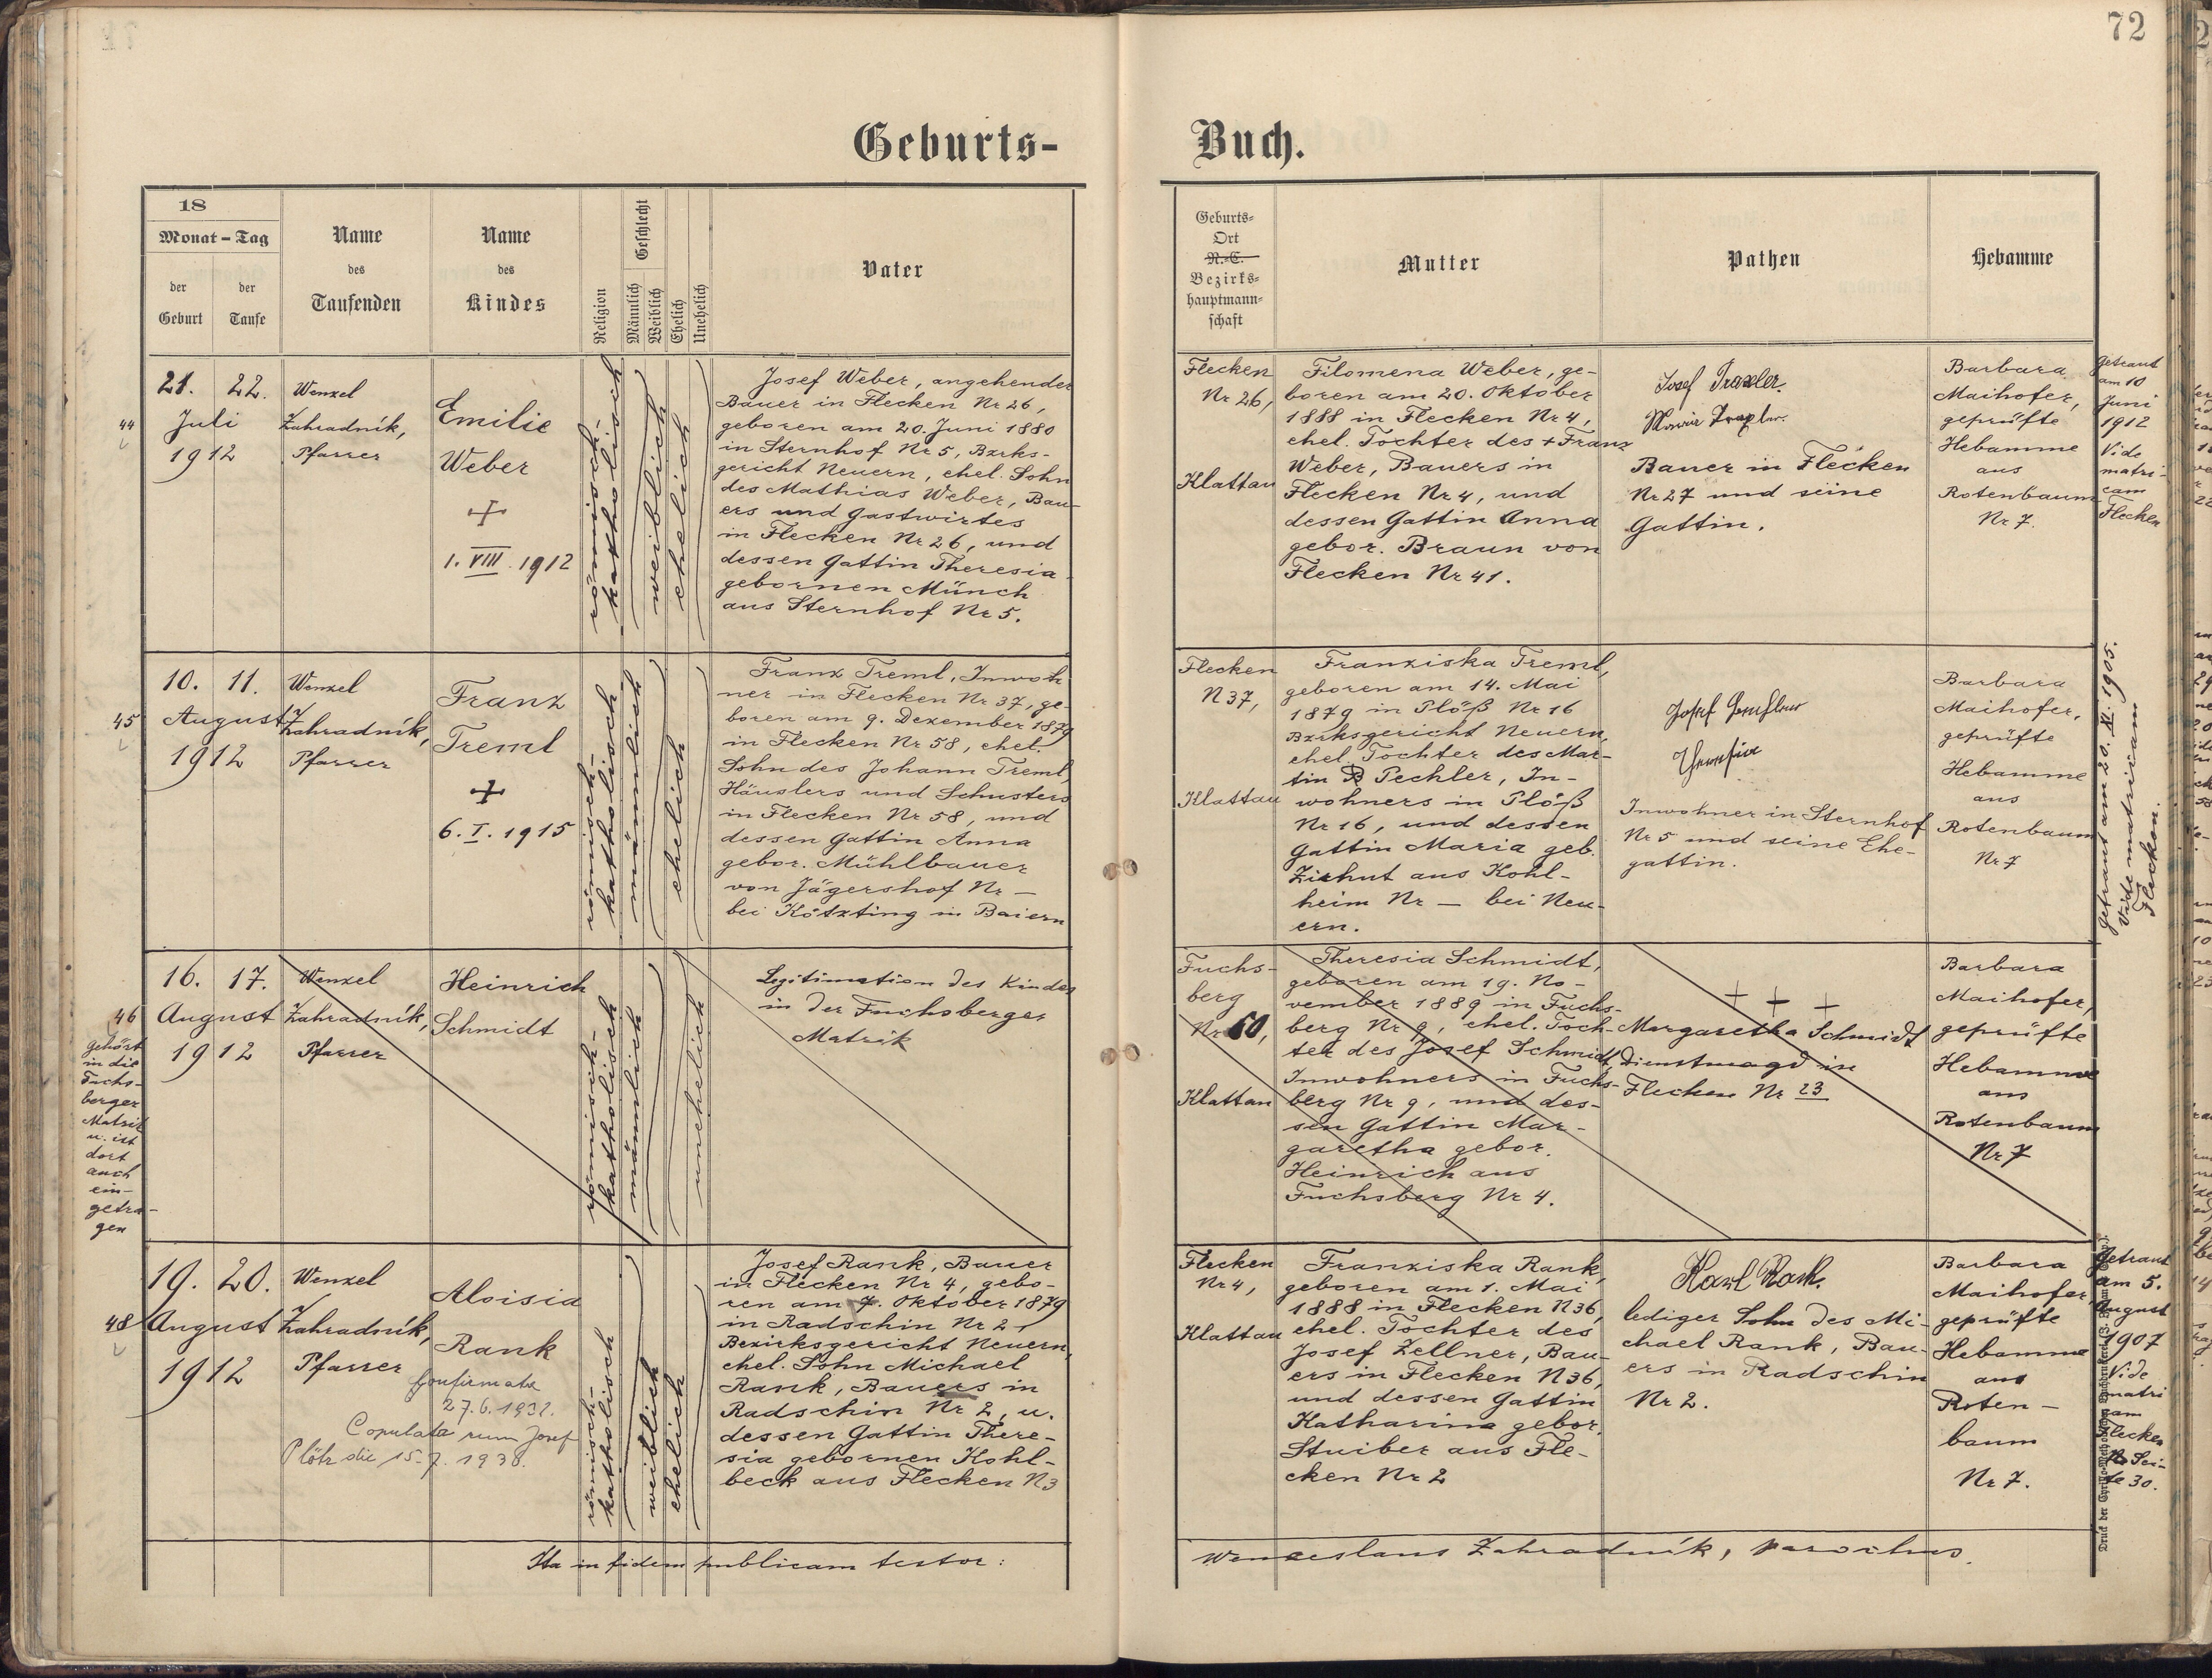 72
Geburts-
Buch.
18
Monat - Tag
der
Geburt
der
Taufe
Name
des
Taufenden
Name
des
Kindes
Religion
Geschlecht
Männlich
Weiblich
Ehelich
Unehelich
Vater
Geburts-
Ort
N.-C.
Bezirks-
hauptmann-
schaft
Mutter
Pathen
Hebamme
44
21. 22.
Juli
1912
Wenzel
Zahradník,
Pfarrer
Emilie
Weber
+
1. VIII. 1912
römisch-
katholisch
weiblich
ehelich
Josef Weber, angehender
Bauer in Flecken Nr 26,
geboren am 20. Juni 1880
in Sternhof Nr 5, Bzrks-
gericht Neuern, ehel. Sohn
des Mathias Weber, Bau-
ers und Gastwirtes
in Flecken Nr 26, und
dessen Gattin Theresia
gebornen Münch
aus Sternhof Nr 5.
Flecken
Nr 26,
Klattau
Filomena Weber, ge-
boren am 20. Oktober
1888 in Flecken Nr 4,
ehel. Tochter des + Franz
Weber, Bauers in
Flecken Nr 4, und
dessen Gattin Anna
gebor. Braun von
Flecken Nr 41.
Josef Traxler.
Maria Traxler.
Bauer in Flecken
Nr 27 und seine
Gattin.
Barbara
Maihofer,
geprüfte
Hebamme
aus
Rotenbaum
Nr 7.
getraut
am 10
Juni
1912
Vide
matri-
cam
Flecken
45
10. 11.
August
1912
Wenzel
Zahradník,
Pfarrer
Franz
Treml
+
6. I. 1915
römisch-
katholisch
männlich
ehelich
Franz Treml, Inwoh
ner in Flecken Nr 37, ge-
boren am 9. Dezember 1879
in Flecken Nr 58, ehel.
Sohn des Johann Treml,
Häuslers und Schusters
in Flecken Nr 58, und
dessen Gattin Anna
gebor. Mühlbauer
von Jägershof Nr —
bei Kötzting in Baiern
Flecken
N 37,
Klattau
Franziska Treml,
geboren am 14. Mai
1879 in Plöß Nr 16
Bzrksgericht Neuern,
ehel. Tochter des Mar-
tin Pechler, In-
wohners in Plöß
Nr 16, und dessen
Gattin Maria geb.
Zierhut aus Kohl-
heim Nr — bei Neu-
ern.
Josef
Theresia
Inwohner in Sternhof
Nr 5 und seine Ehe-
gattin.
Barbara
Maihofer,
geprüfte
Hebamme
aus
Rotenbaum
Nr 7
getraut am 20. XI. 1905.
Vide matricam
Flecken.
46
gehört
in die
Fuchs-
berger
Matrik
u. ist
dort
auch
ein-
getra-
gen
16. 17.
August
1912
Wenzel
Zahradník,
Pfarrer
Heinrich
Schmidt
römisch-
katholisch
männlich
unehelich
Legitimation des Kindes
in der Fuchsberger
Matrik
Fuchs-
berg
Nr 60,
Klattau
Theresia Schmidt,
geboren am 19. No-
vember 1889 in Fuchs-
berg Nr 9, ehel. Toch-
ter des Josef Schmidt,
Inwohners in Fuchs-
berg Nr 9, und des-
sen Gattin Mar-
garetha gebor.
Heinrich aus
Fuchsberg Nr 4.
+ + +
Margaretha Schmidt
Dienstmagd in
Flecken Nr 23
Barbara
Maihofer,
geprüfte
Hebamme
aus
Rotenbaum
Nr 7
48
19. 20.
August
1912
Wenzel
Zahradník,
Pfarrer
Aloisia
Rank
Confirmata
27.6.1932.
Copulata cum Josef
Plötz die 15.7.1938.
römisch-
katholisch
weiblich
ehelich
Josef Rank, Bauer
in Flecken Nr 4, gebo-
ren am 7. Oktober 1879
in Radschin Nr 2,
Bezirksgericht Neuern,
ehel. Sohn Michael
Rank, Bauers in
Radschin Nr 2, u.
dessen Gattin There-
sia gebornen Kohl-
beck aus Flecken N3
Flecken
Nr 4,
Klattau
Franziska Rank,
geboren am 1. Mai
1888 in Flecken N36,
ehel. Tochter des
Josef Zellner, Bau-
ers in Flecken N36,
und dessen Gattin
Katharina gebor.
Stuiber aus Fle-
cken Nr 2
Karl Rank.
lediger Sohn des Mi-
chael Rank, Bau-
ers in Radschin
Nr 2.
Barbara
Maihofer,
geprüfte
Hebamme
aus
Roten-
baum
Nr 7.
Getraut
am 5.
August
1907
Vide
matri
cam
Flecken
Sei-
te 30.
Ita in fidem publicam testor:
Wenceslaus Zahradník, parochus.